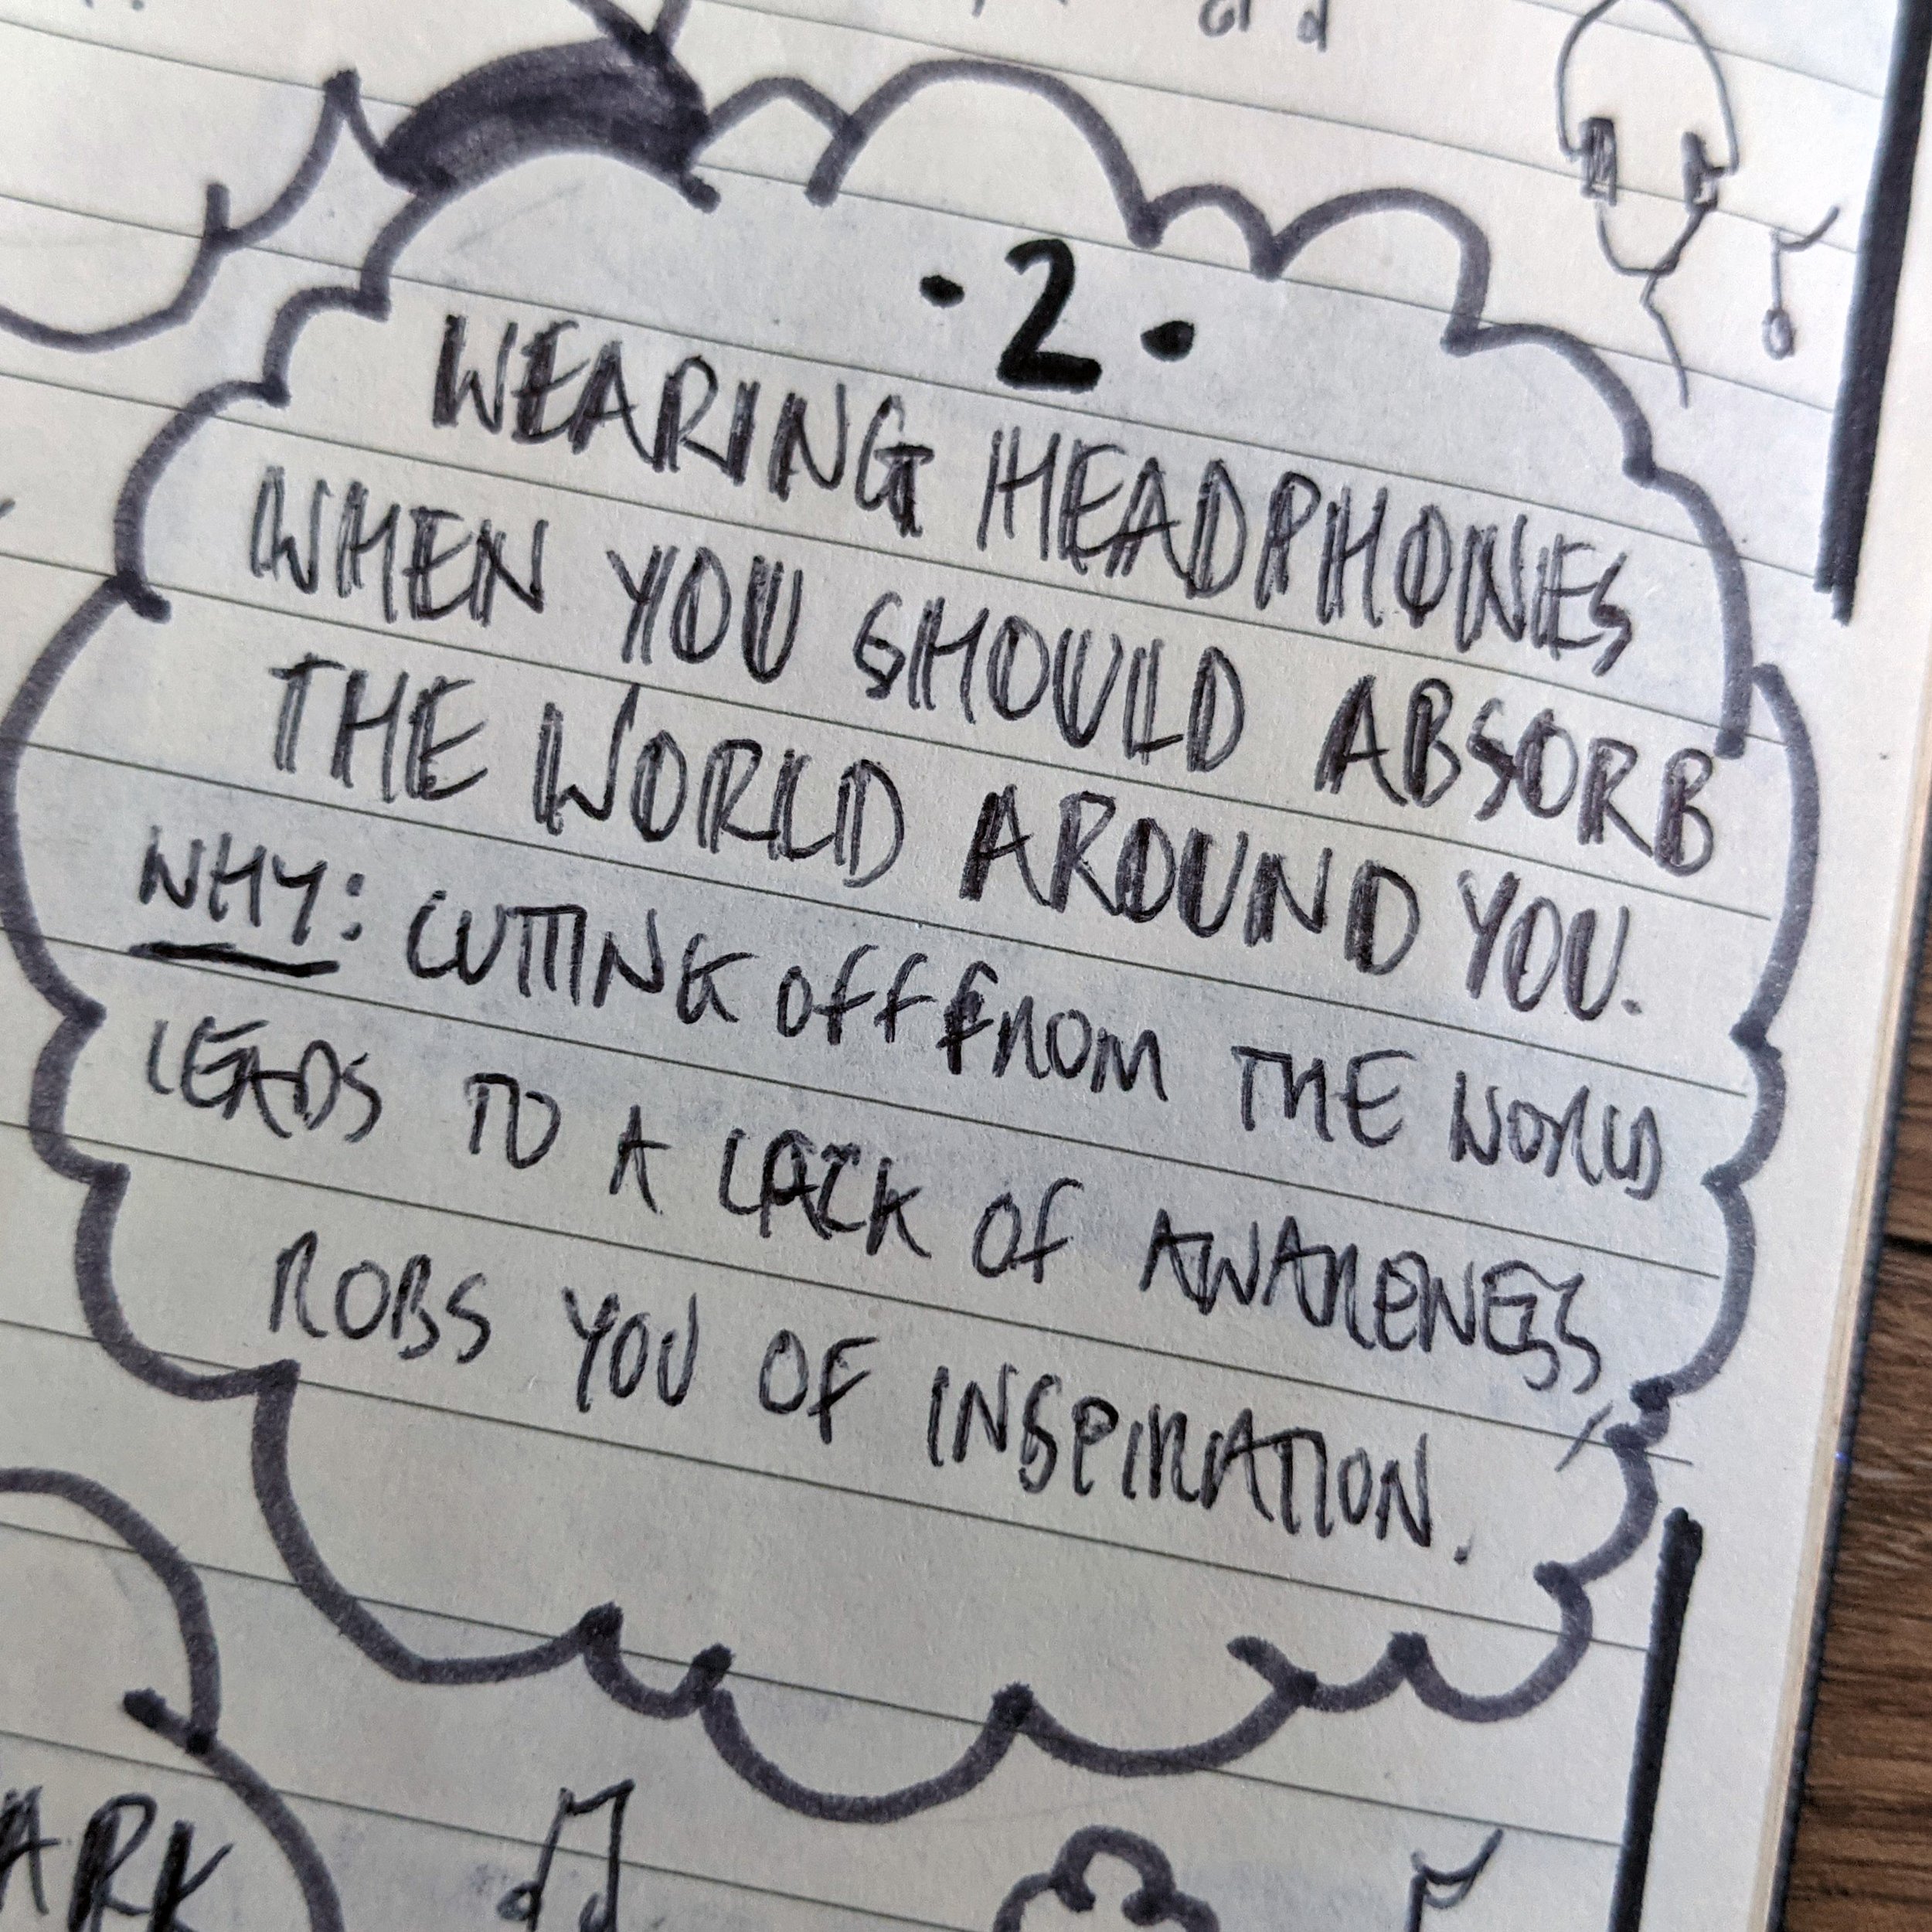 ·2·
WEARING HEADPHONES
WHEN YOU SHOULD ABSORB
THE WORLD AROUND YOU.
WHY: CUTTING OFF FROM THE WORLD
LEADS TO A LACK OF AWARENESS
ROBS YOU OF INSPIRATION.
ARK